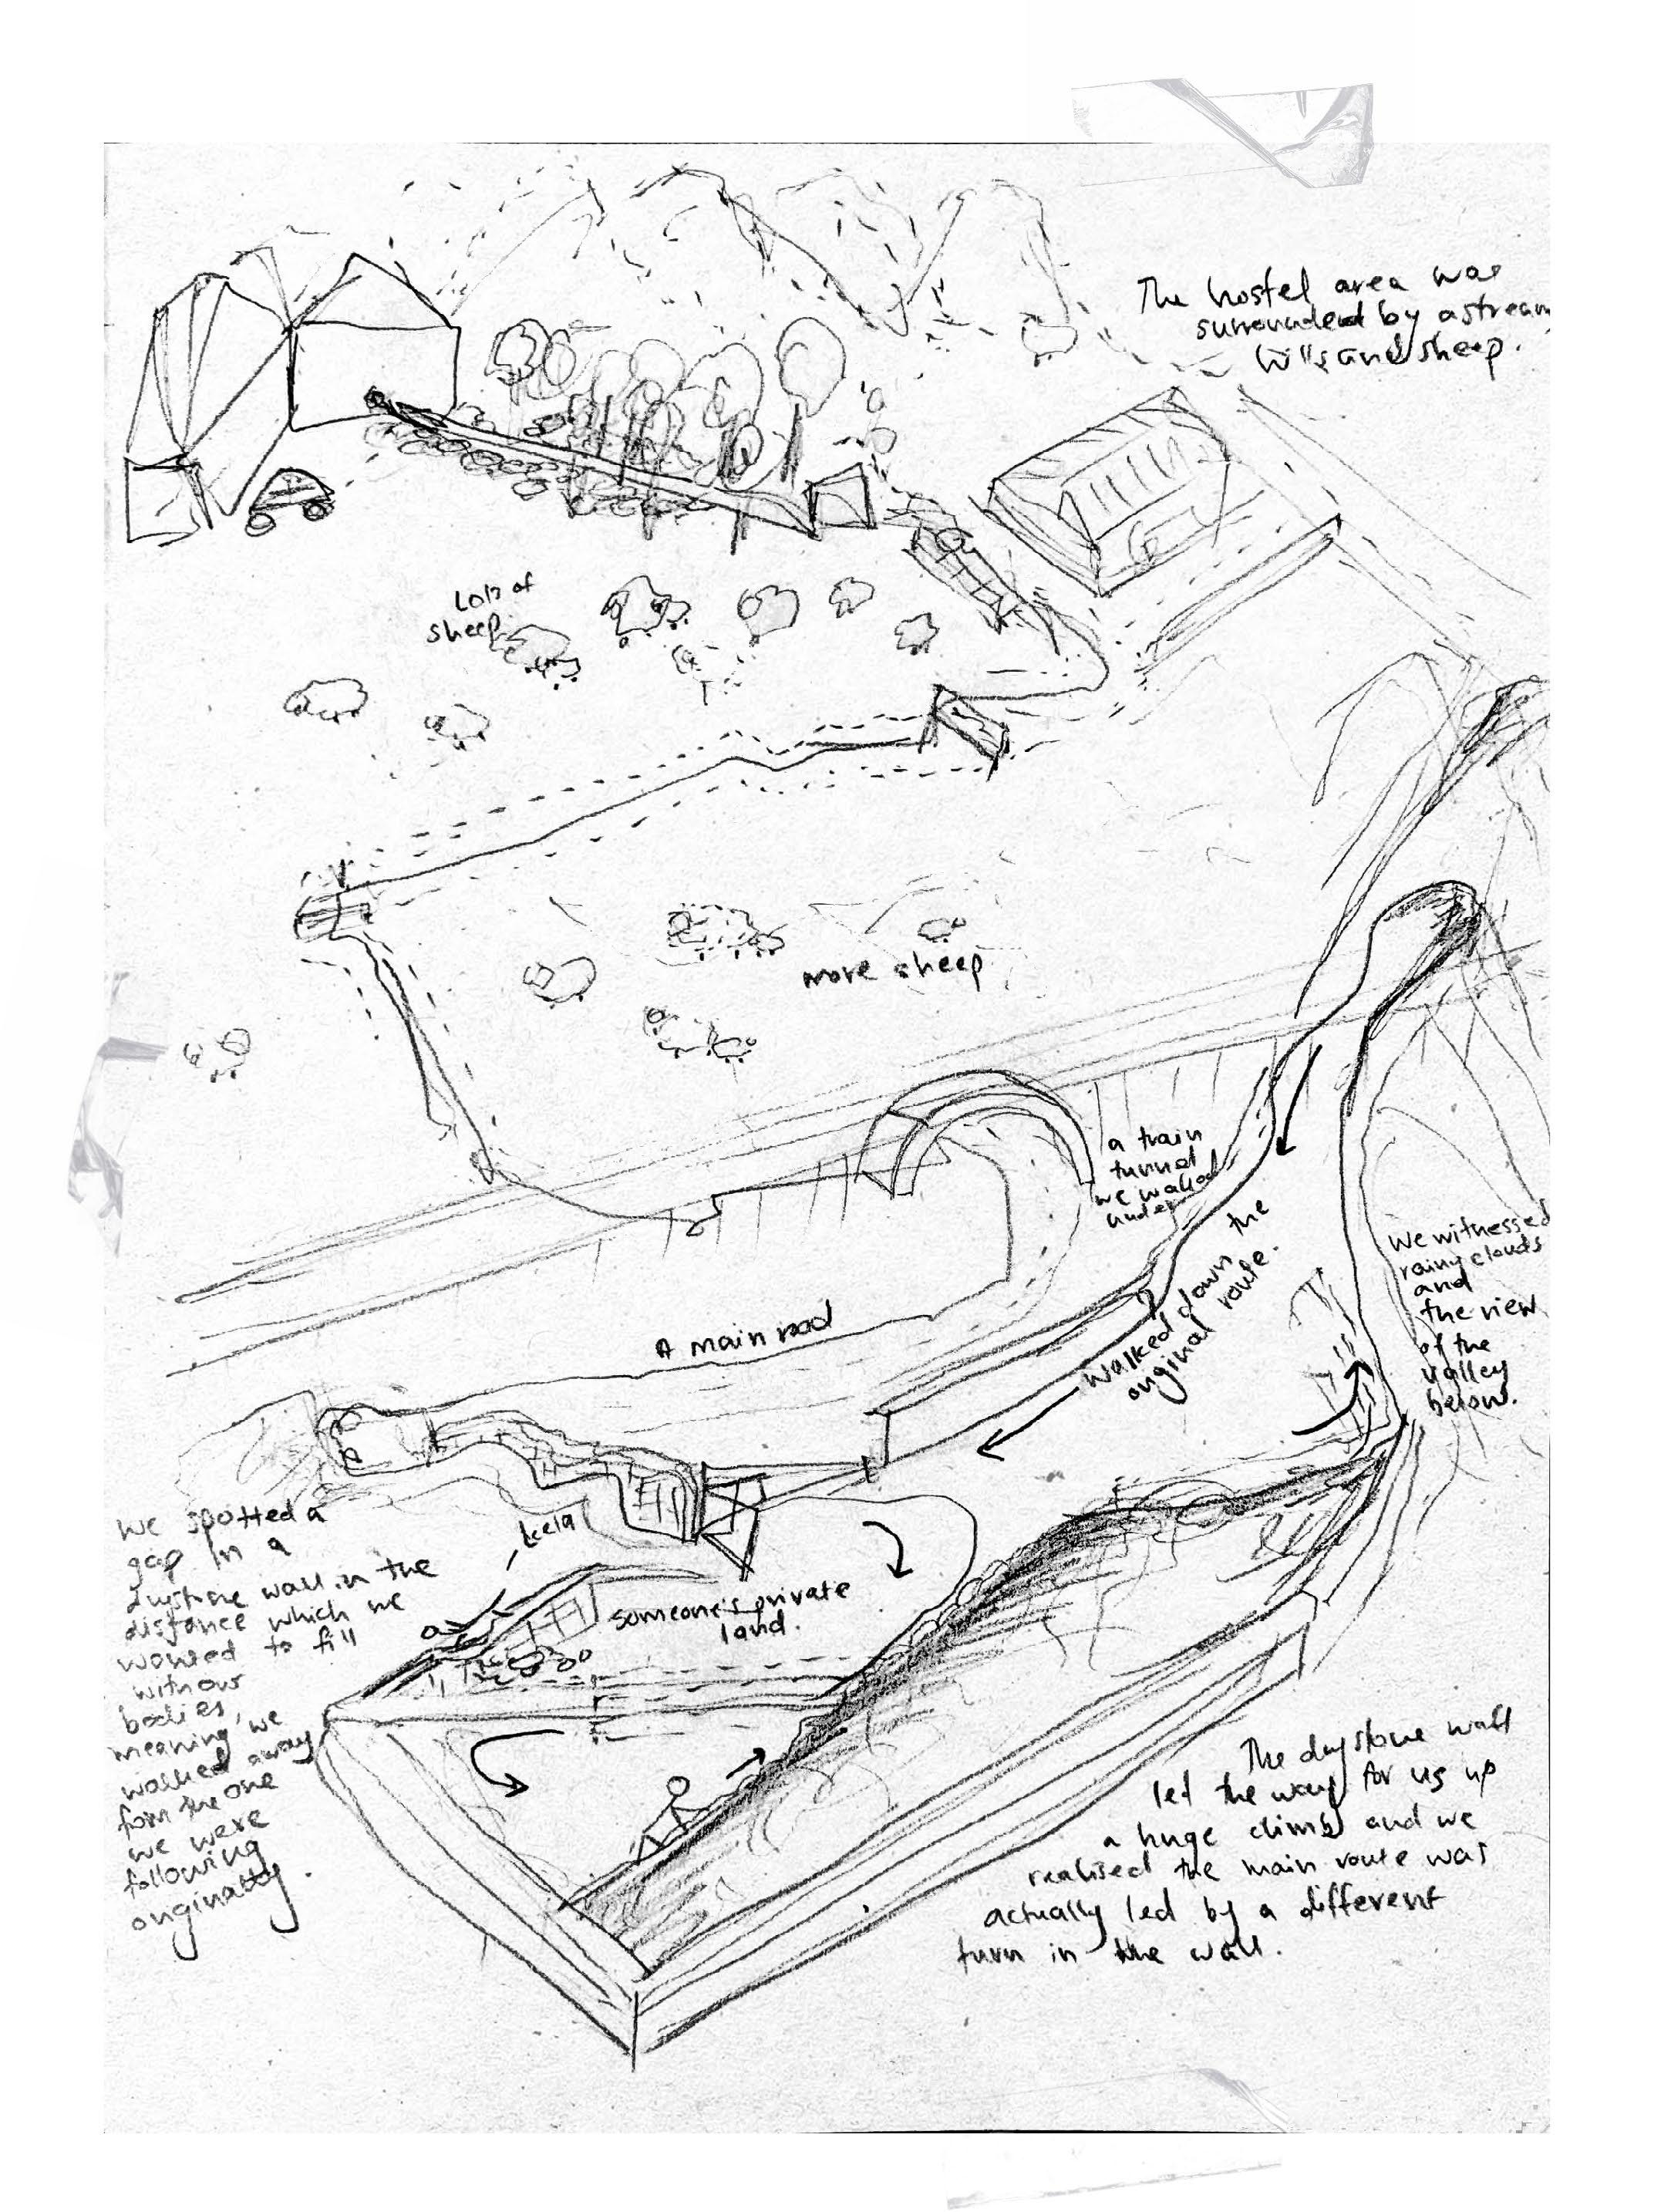 The hostel area was
surrounded by a stream
hills and sheep.
Lots of
sheep
more sheep
a train
tunnel
we walked
under
walked down the
original route.
We witnessed
rainy clouds
and
the view
of the
valley
below.
A main road
someone's private
land.
We spotted a
gap in a
drystone wall in the
distance which we
wanted to fill
with our
bodies,
meaning we
walked away
form the one
we were
following
originally.
The drystone wall
led the way for us up
a huge climb and we
realised the main route was
actually led by a different
turn in the wall.